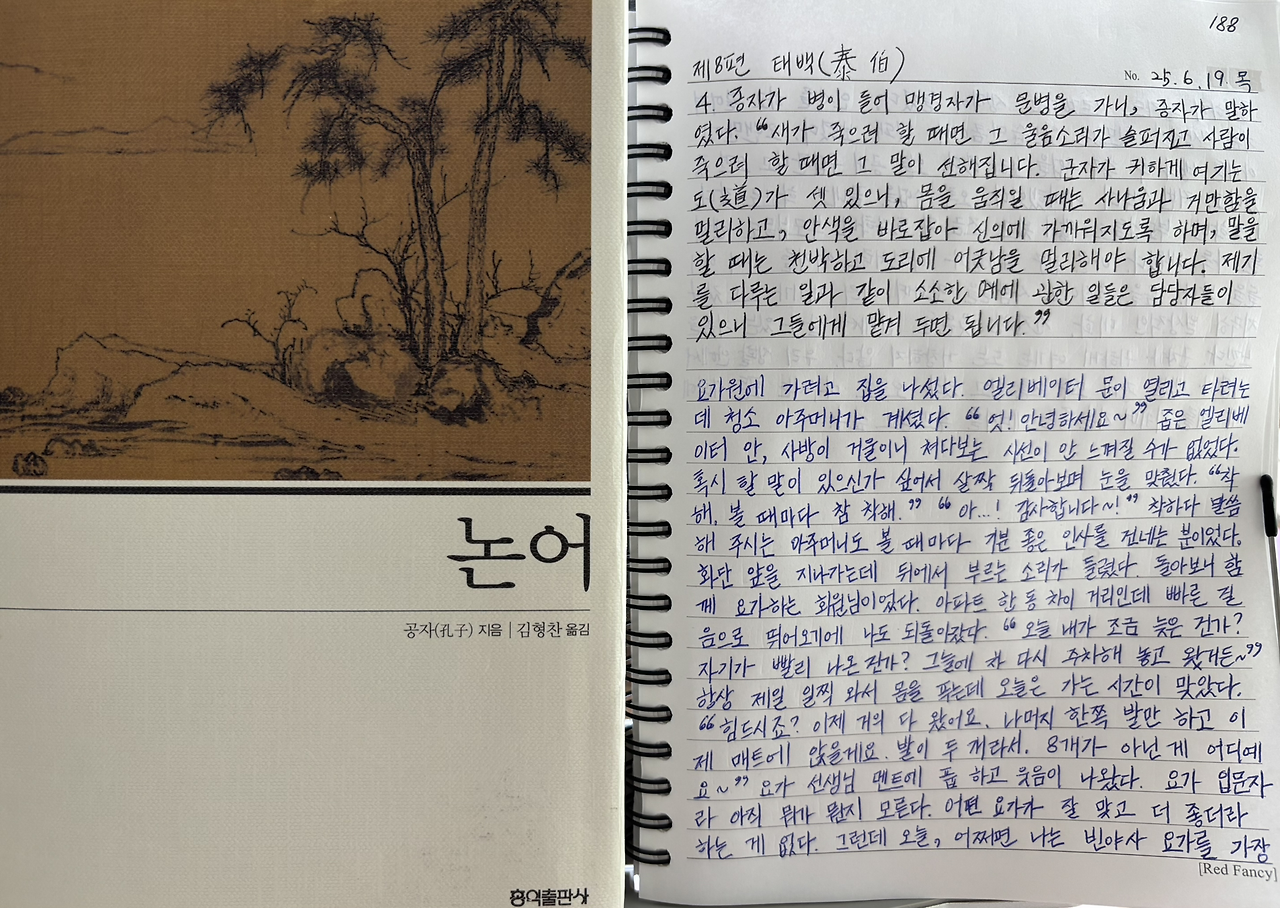 논어
공자(孔子) 지음 | 김형찬 옮김
홍익출판사
188
제8편 태백(泰伯)
No. 25. 6. 19. 목
4. 증자가 병이 들어 맹경자가 문병을 가니, 증자가 말하
였다. “새가 죽으려 할 때면 그 울음소리가 슬퍼지고 사람이
죽으려 할 때면 그 말이 선해집니다. 군자가 귀하게 여기는
도(道)가 셋 있으니, 몸을 움직일 때는 사나움과 거만함을
멀리하고, 안색을 바로잡아 신의에 가까워지도록 하며, 말을
할 때는 천박하고 도리에 어긋남을 멀리해야 합니다. 제기
를 다루는 일과 같이 소소한 예에 관한 일들은 담당자들이
있으니 그들에게 맡겨 두면 됩니다.”
요가원에 가려고 집을 나섰다. 엘리베이터 문이 열리고 타려는
데 청소 아주머니가 계셨다. “엇! 안녕하세요~” 좁은 엘리베
이터 안, 사방이 거울이니 쳐다보는 시선이 안 느껴질 수가 없었다.
혹시 할 말이 있으신가 싶어서 살짝 뒤돌아보며 눈을 맞췄다. “착
해. 볼 때마다 참 착해.” “아...! 감사합니다~!” 착하다 말씀
해 주시는 아주머니도 볼 때마다 기분 좋은 인사를 건네는 분이었다.
화단 앞을 지나가는데 뒤에서 부르는 소리가 들렸다. 돌아보니 함
께 요가하는 회원님이었다. 아파트 한 동 차이 거리인데 빠른 걸
음으로 뛰어오기에 나도 되돌아갔다. “오늘 내가 조금 늦은 건가?
자기가 빨리 나온 건가? 그늘에 차 다시 주차해 놓고 왔거든~”
항상 제일 일찍 와서 몸을 푸는데 오늘은 가는 시간이 맞았다.
“힘드시죠? 이제 거의 다 왔어요. 나머지 한쪽 발만 하고 이
제 매트에 앉을게요. 발이 두 개라서. 8개가 아닌 게 어디예
요~” 요가 선생님 멘트에 풉 하고 웃음이 나왔다. 요가 입문자
라 아직 뭐가 뭔지 모른다. 어떤 요가가 잘 맞고 더 좋더라
하는 게 없다. 그런데 오늘, 어쩌면 나는 빈야사 요가를 가장
[Red Fancy]